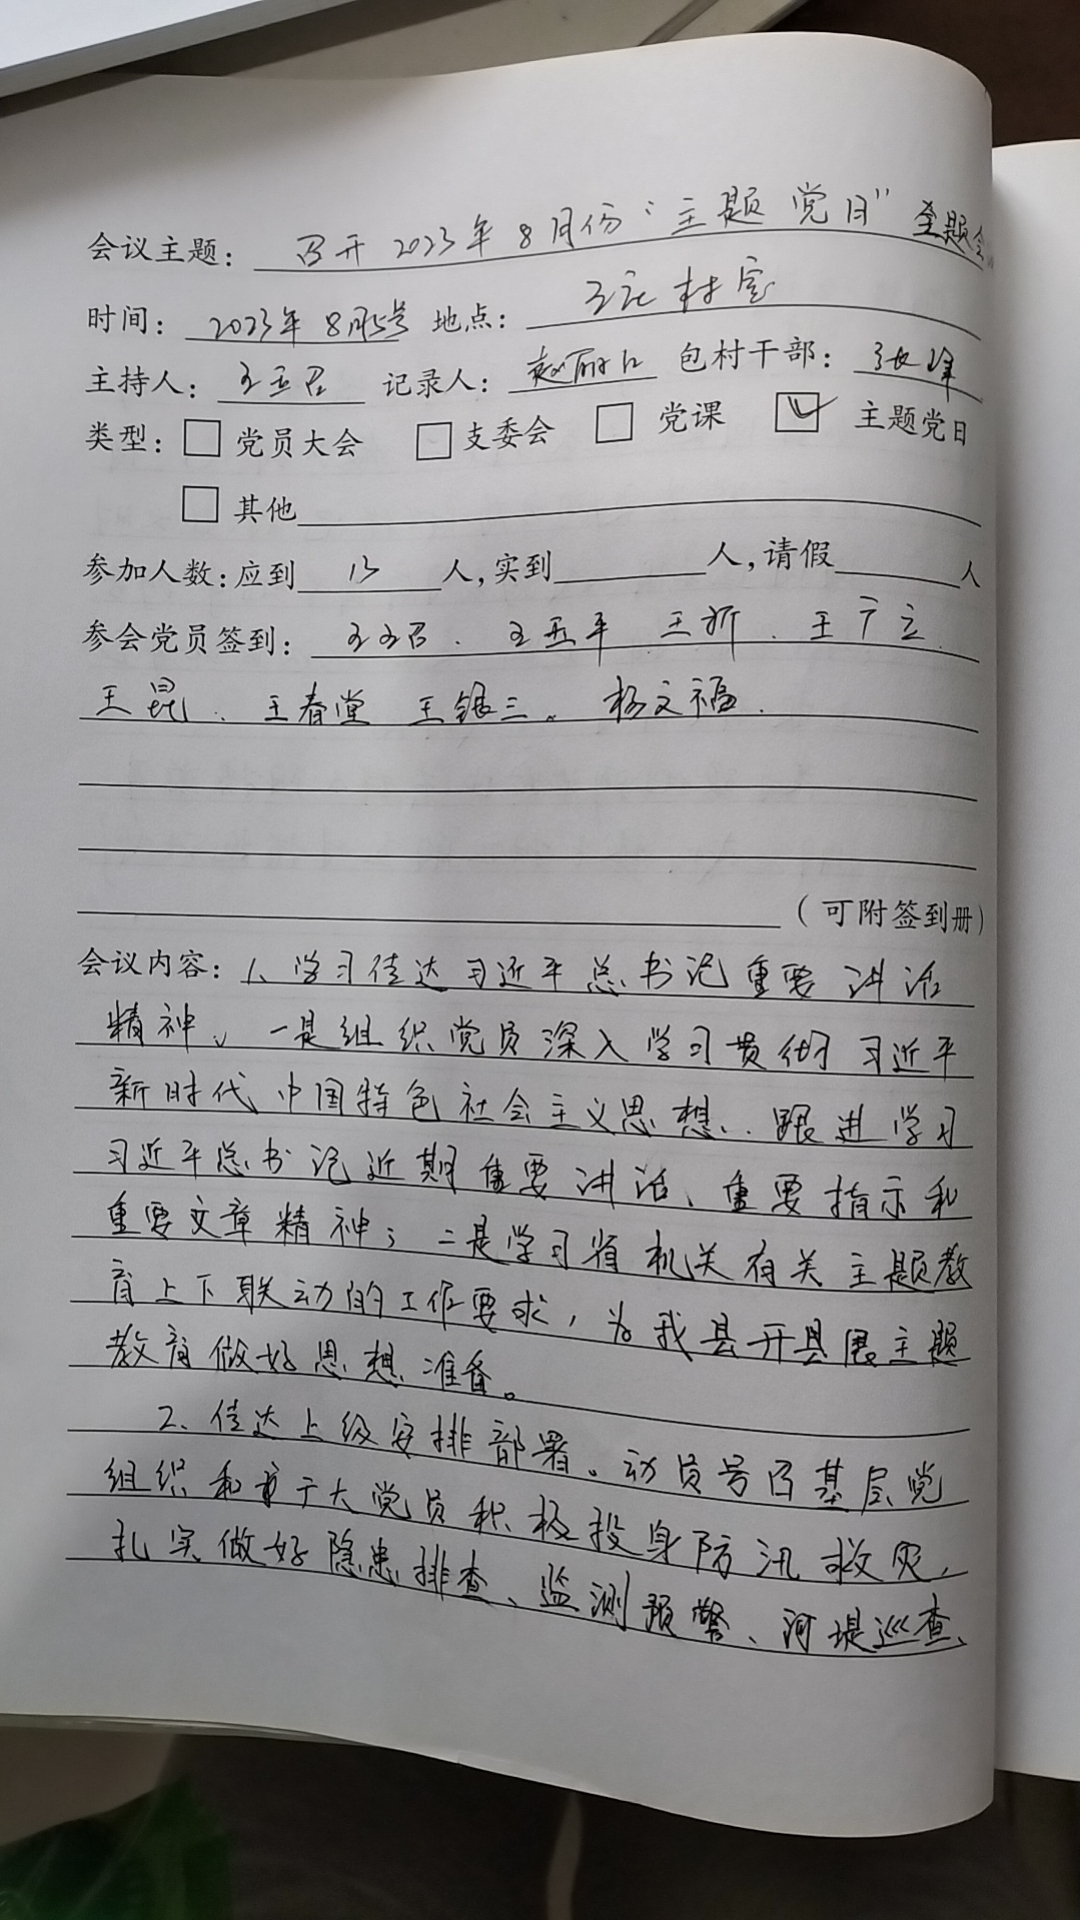 会议主题：召开2023年8月份“主题党日”
时间：2023年8月5号 地点：村室
主持人：王五召 记录人：赵丽 包村干部：张峰
类型：□党员大会 □支委会 □党课 ☑主题党日
□其他
参加人数：应到13人，实到 人，请假 人
参会党员签到：王五召. 王五平 王折. 王广立.
王昆. 王春堂 王银三。杨文福.
（可附签到册）
会议内容：1、学习传达习近平总书记重要讲话
精神、一是组织党员深入学习贯彻习近平
新时代中国特色社会主义思想..跟进学习
习近平总书记近期重要讲话、重要指示和
重要文章精神；二是学习省机关有关主题教
育上下联动的工作要求，为我县开县展主题
教育做好思想准备。
2、传达上级安排部署。动员号召基层党
组织和于大党员积极投身防汛救灾，
扎实做好隐患排查、监测预警、河堤巡查、